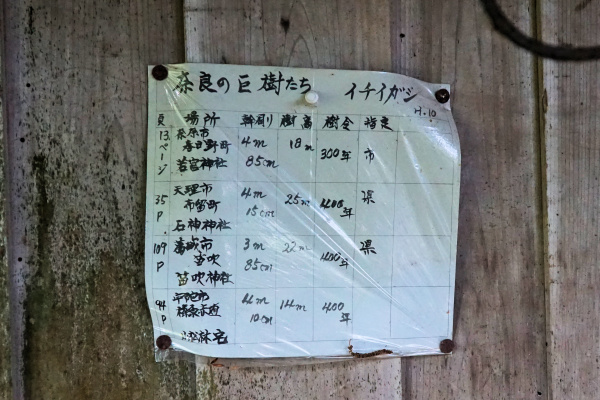 奈良の巨樹たち イチイガシ
H.10
頁 場所 幹周り 樹高 樹令 指定
13ページ 奈良市 春日野町 若宮神社 4m 85cm 18m 300年 市
35P 天理市 布留町 石神神社 4m 15cm 25m 400年 県
109P 葛城市 笛吹 笛吹神社 3m 85cm 22m 400年 県
94P 4m 10cm 14m 400年